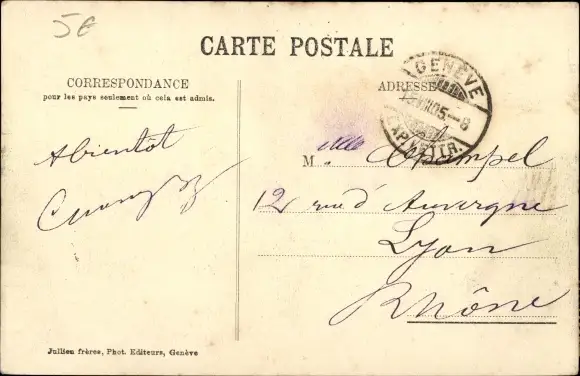 5€
CARTE POSTALE
CORRESPONDANCE
pour les pays seulement où cela est admis.
ADRESSE
GENÈVE
EXP. LETTR.
Abientôt
M lle
12 rue d'Auvergne
Lyon
Rhône
Jullien frères, Phot. Editeurs, Genève